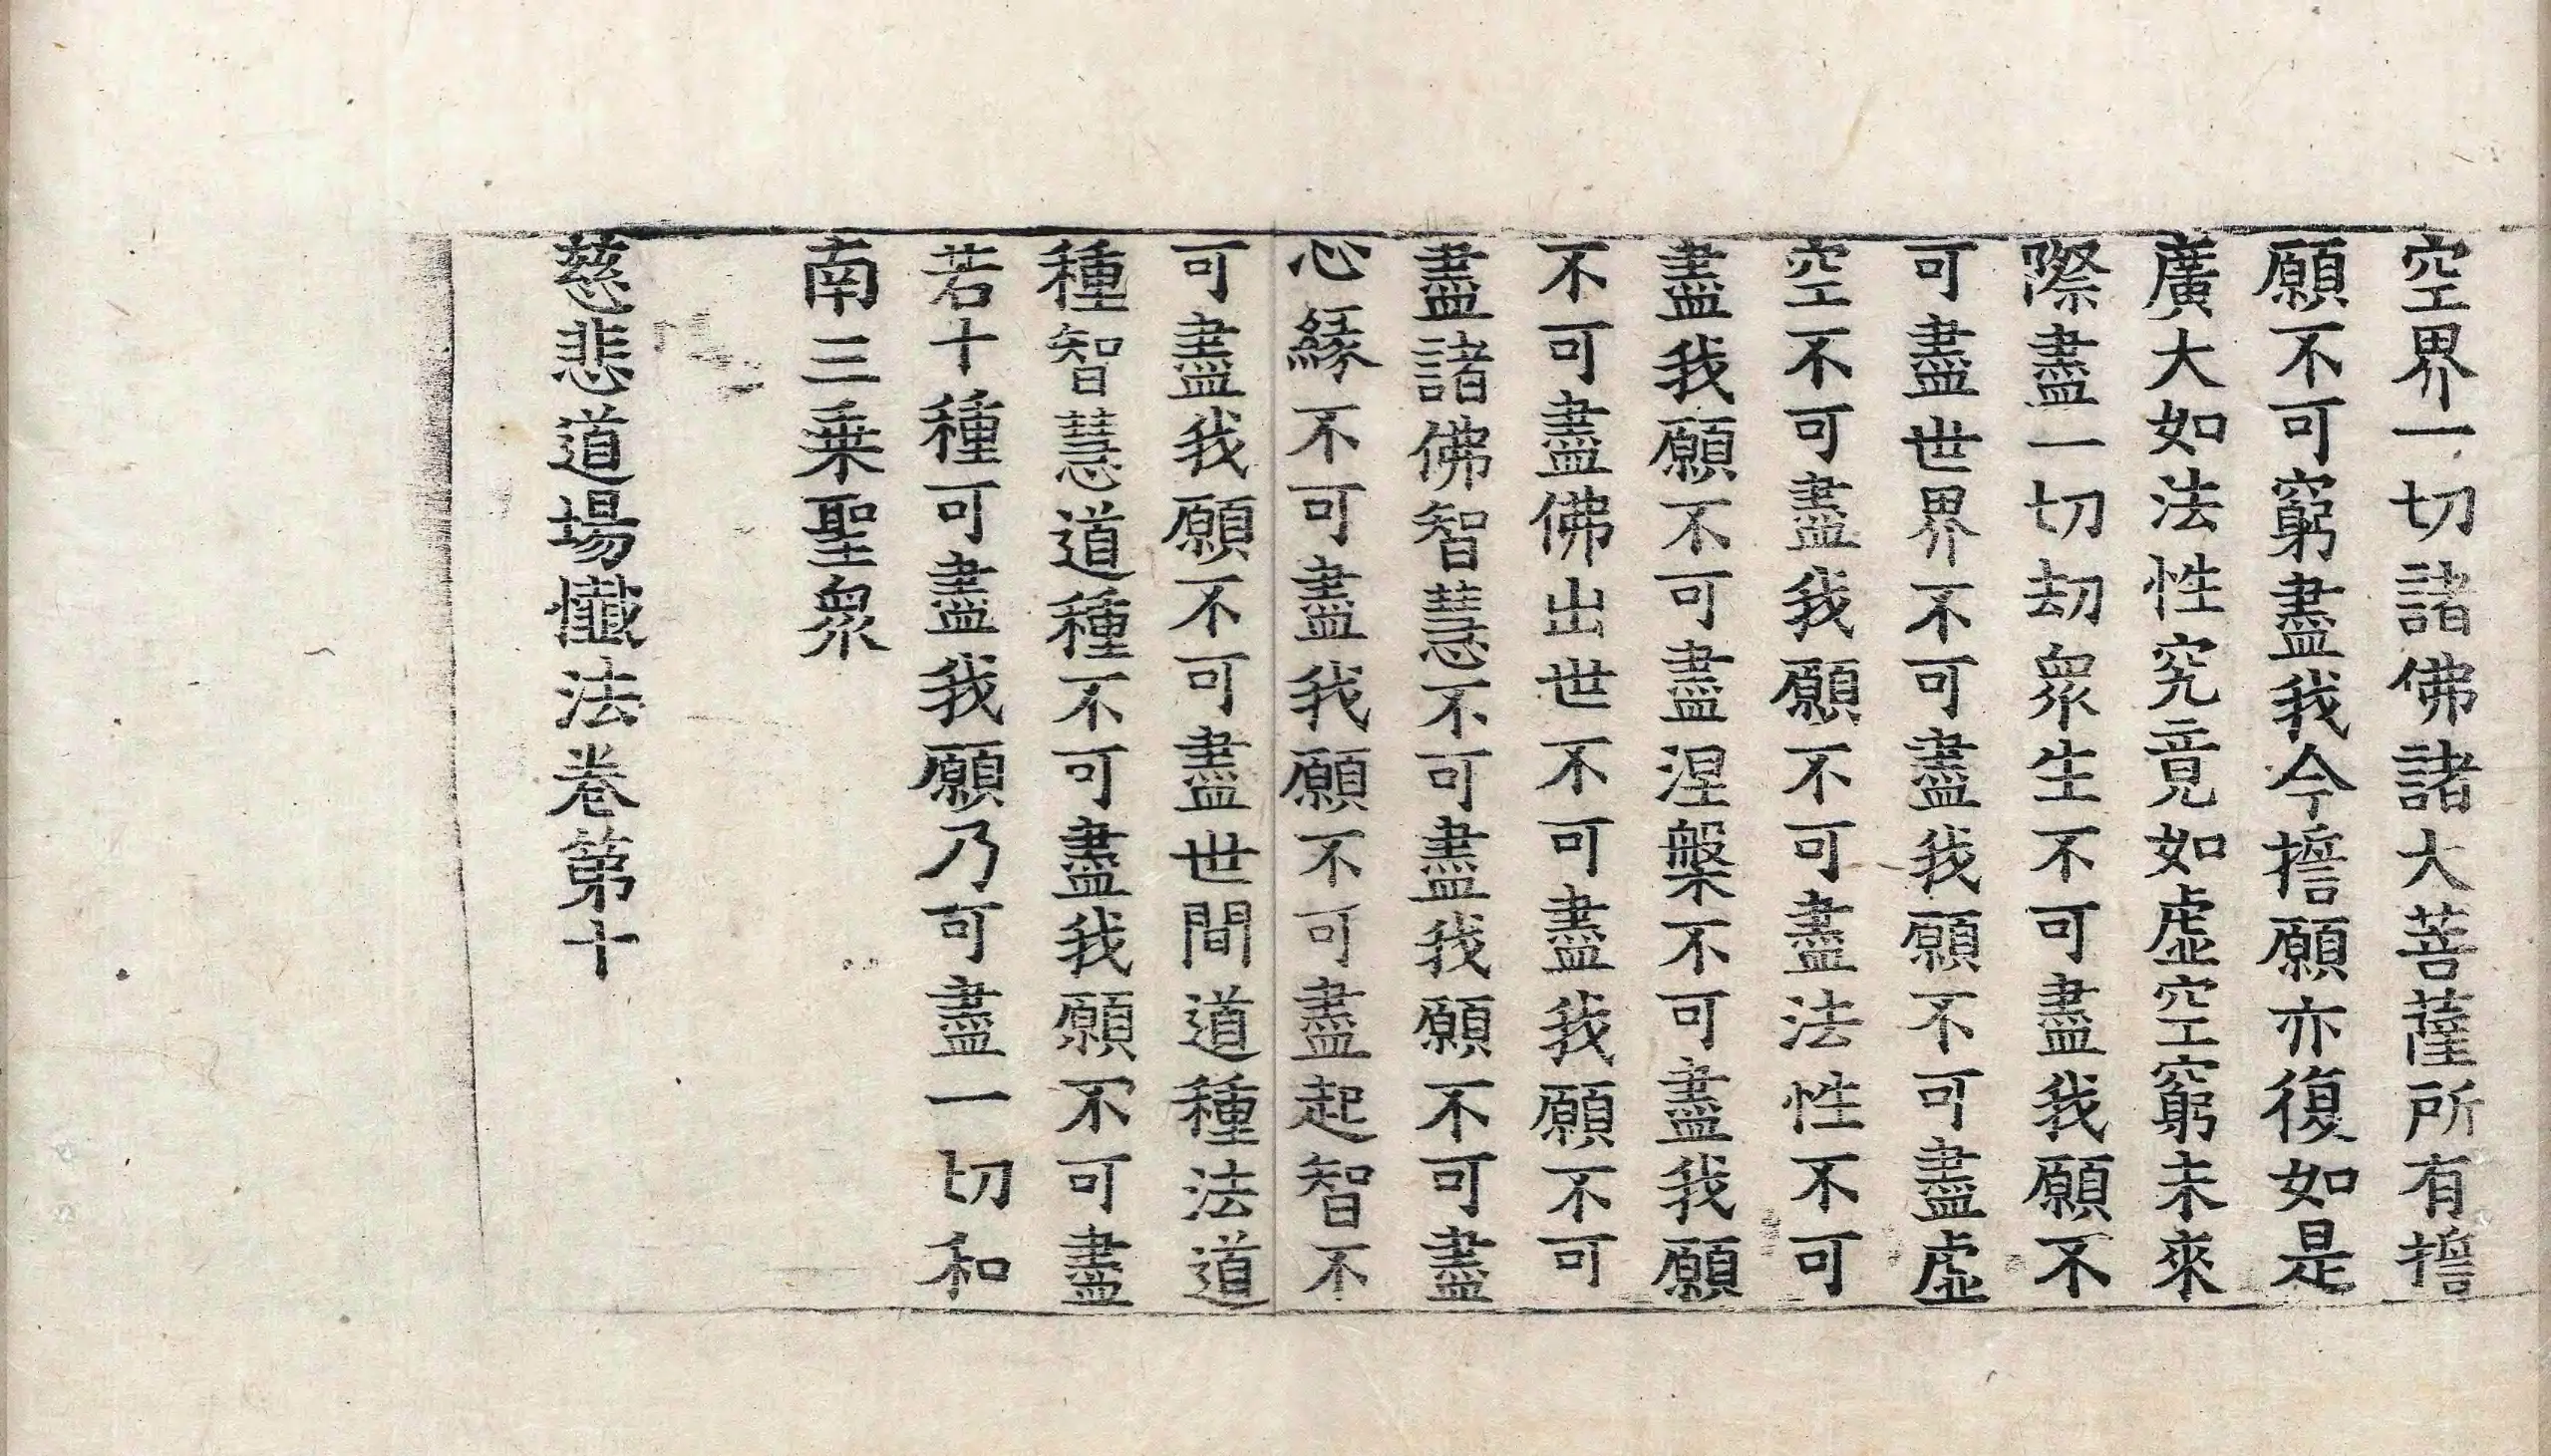 空界一切諸佛諸大菩薩所有擔
願不可窮盡我今擔願亦復如是
廣大如法性究竟如虛空窮未來
際盡一切劫眾生不可盡我願不
可盡世界不可盡我願不可盡虛
空不可盡我願不可盡法性不可
盡我願不可盡涅槃不可盡我願
不可盡佛出世不可盡我願不可
盡諸佛智慧不可盡我願不可盡
心緣不可盡我願不可盡起智不
可盡我願不可盡世間道種法道
種智慧道種不可盡我願不可盡
若十種可盡我願乃可盡一切和
南三乗聖眾
慈悲道場懺法卷第十